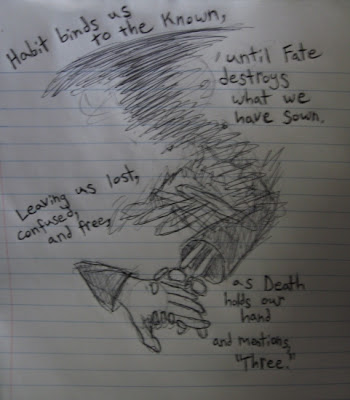 Habit binds us
to the Known,
until Fate
destroys
what we
have sown.
Leaving us lost,
confused,
and free,
as Death
holds our
hand
and mentions,
"Three."